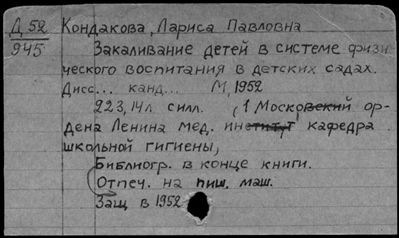 Д 52 Кондакова, Лариса Павловна
945 Закаливание детей в системе физи
ческого воспитания в детских садах.
Дисс... канд... М, 1952
223, 14 л. силл. (1 Московский ор-
дена Ленина мед. институт, кафедра
школьной гигиены,
Библиогр. в конце книги.
Отпеч. на пиш. маш.
Защ в 1952